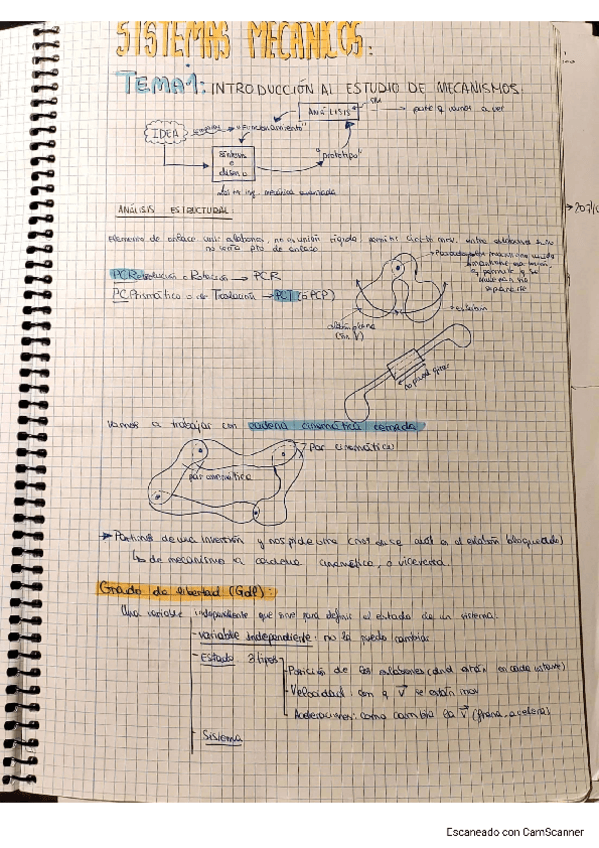 SISTEMAS MECÁNICOS:
TEMA 1: INTRODUCCIÓN AL ESTUDIO DE MECANISMOS.
ANÁLISIS
parte q vamos a ver
IDEA
"Funcionamiento"
Síntesis
o
diseño
"prototipo"
mecánica avanzada
ANÁLISIS ESTRUCTURAL
Elemento de enlace une eslabones, no es unión rígida permite cierto mov. entre eslabones
PC Revolución o Rotación → PCR
PC Prismático o de Traslación → PCT (ó PCP)
→ eslabón
no puede girar
Vamos a trabajar con cadena cinemática cerrada
Par cinemático
par cinemático
→ Partimos de una inversión y nos pide otra (nos dice cuál es el eslabón bloqueado)
↳ de mecanismo a cadena cinemática, o viceversa.
Grado de libertad (Gdl):
Una variable independiente que sirve para definir el estado de un sistema.
- variable independiente: no la puedo cambiar
- Estado 3 tipos
- Posición de los eslabones (dnd están en cada instante)
- Velocidad: con q V se están mov
Aceleraciones: como cambia la V (frena, acelera)
- Sistema
Escaneado con CamScanner